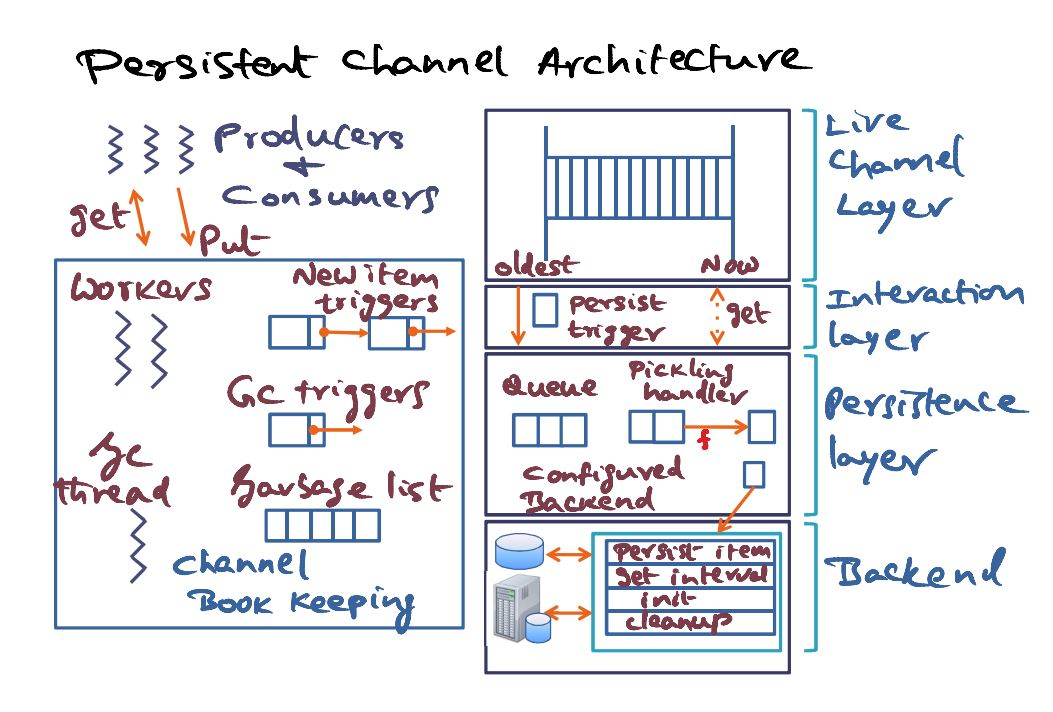 Persistent Channel Architecture
Producers
+
Consumers
get
Put
Workers
New item
triggers
GC triggers
GC
thread
Garbage list
Channel
Book Keeping
oldest
Now
Live
Channel
Layer
persist
trigger
get
Interaction
layer
Queue
Pickling
handler
f
Configured
Backend
Persistence
layer
persist item
get interval
init
cleanup
Backend